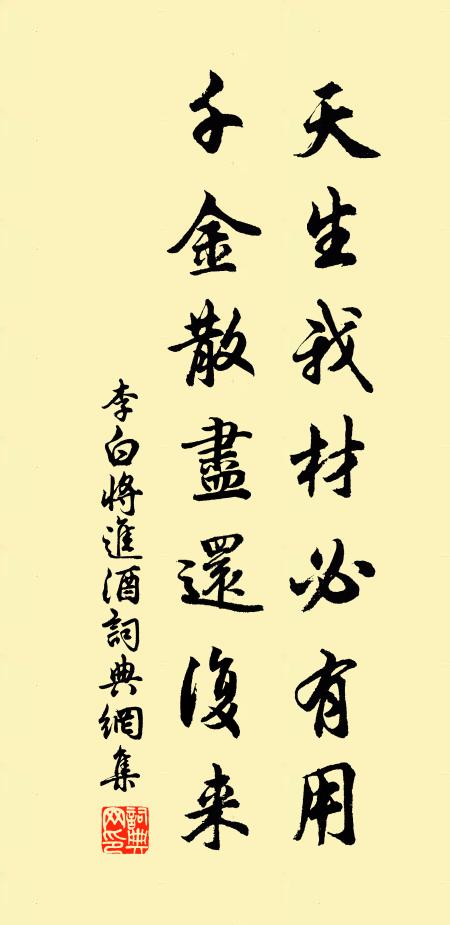 天生我材必有用
千金散盡還復来
李白将進酒詞典網集
詞典網印